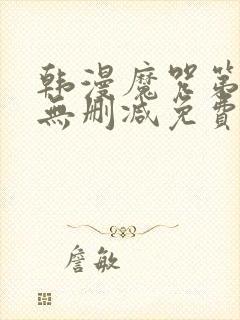 韩漫魔咒第
無删减免費
詹敏